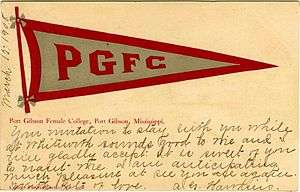 March 12, 1905
PGFC
Port Gibson Female College, Port Gibson, Mississippi.
Your invitation to stay with you while
at Whitworth sounds good to me and I
feel gladly accept. It is sweet of you
to want me. I am anticipating
much pleasure at see you all again
of love